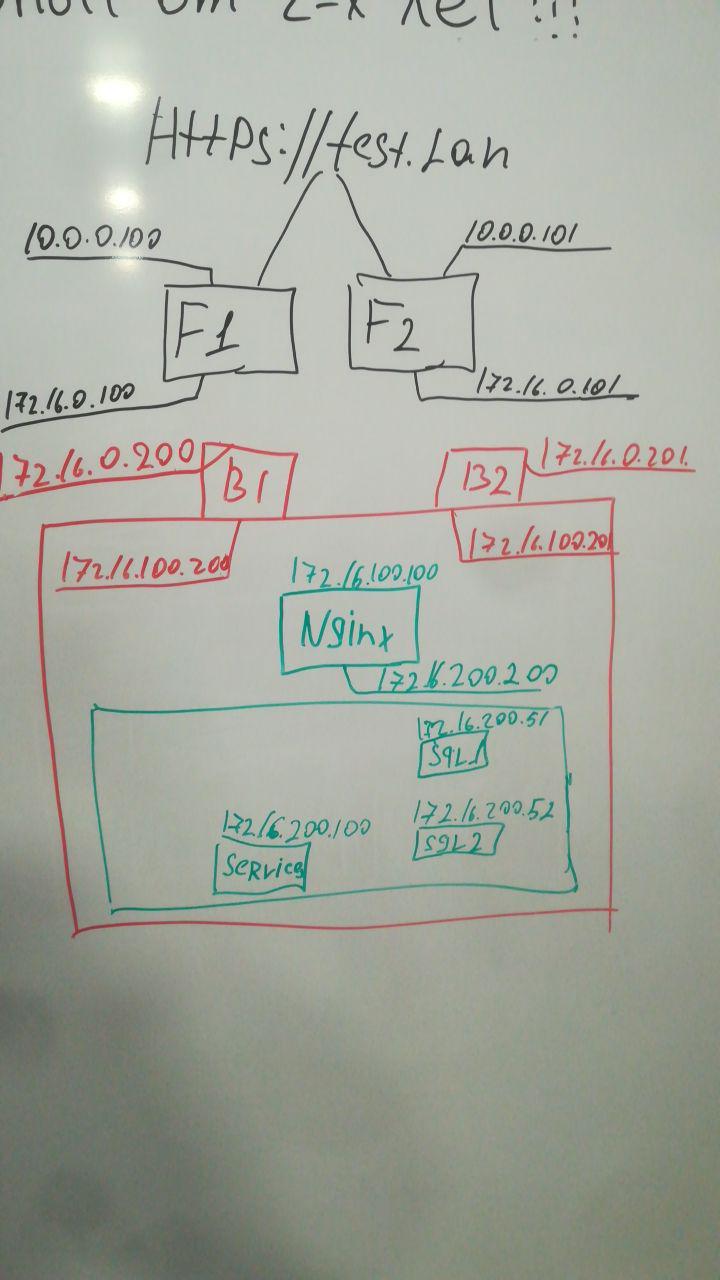 от 2-х лет !!!
HttPs://test.Lan
10.0.0.100
10.0.0.101
F1
F2
172.16.0.100
172.16.0.101
172.16.0.200
B1
B2
172.16.0.201
172.16.100.200
172.16.100.20
172.16.100.100
Nginx
172.16.200.200
172.16.200.51
SQL1
172.16.200.100
172.16.200.52
Service
SQL2